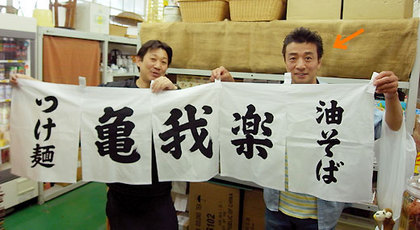 つけ麺
亀
我
楽
油そば